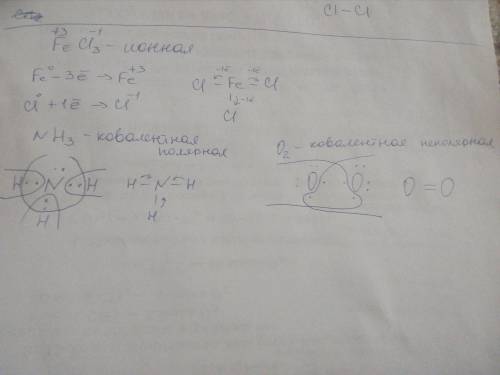 Cl–Cl
+3 -1
FeCl₃ – ионная
Fe⁰ – 3ē → Fe⁺³
Cl⁰ + 1ē → Cl⁻¹
Cl Fe Cl
Cl
NH₃ – ковалентная
полярная
H N H
H
H N H
H
O₂ – ковалентная неполярная
O O
O=O